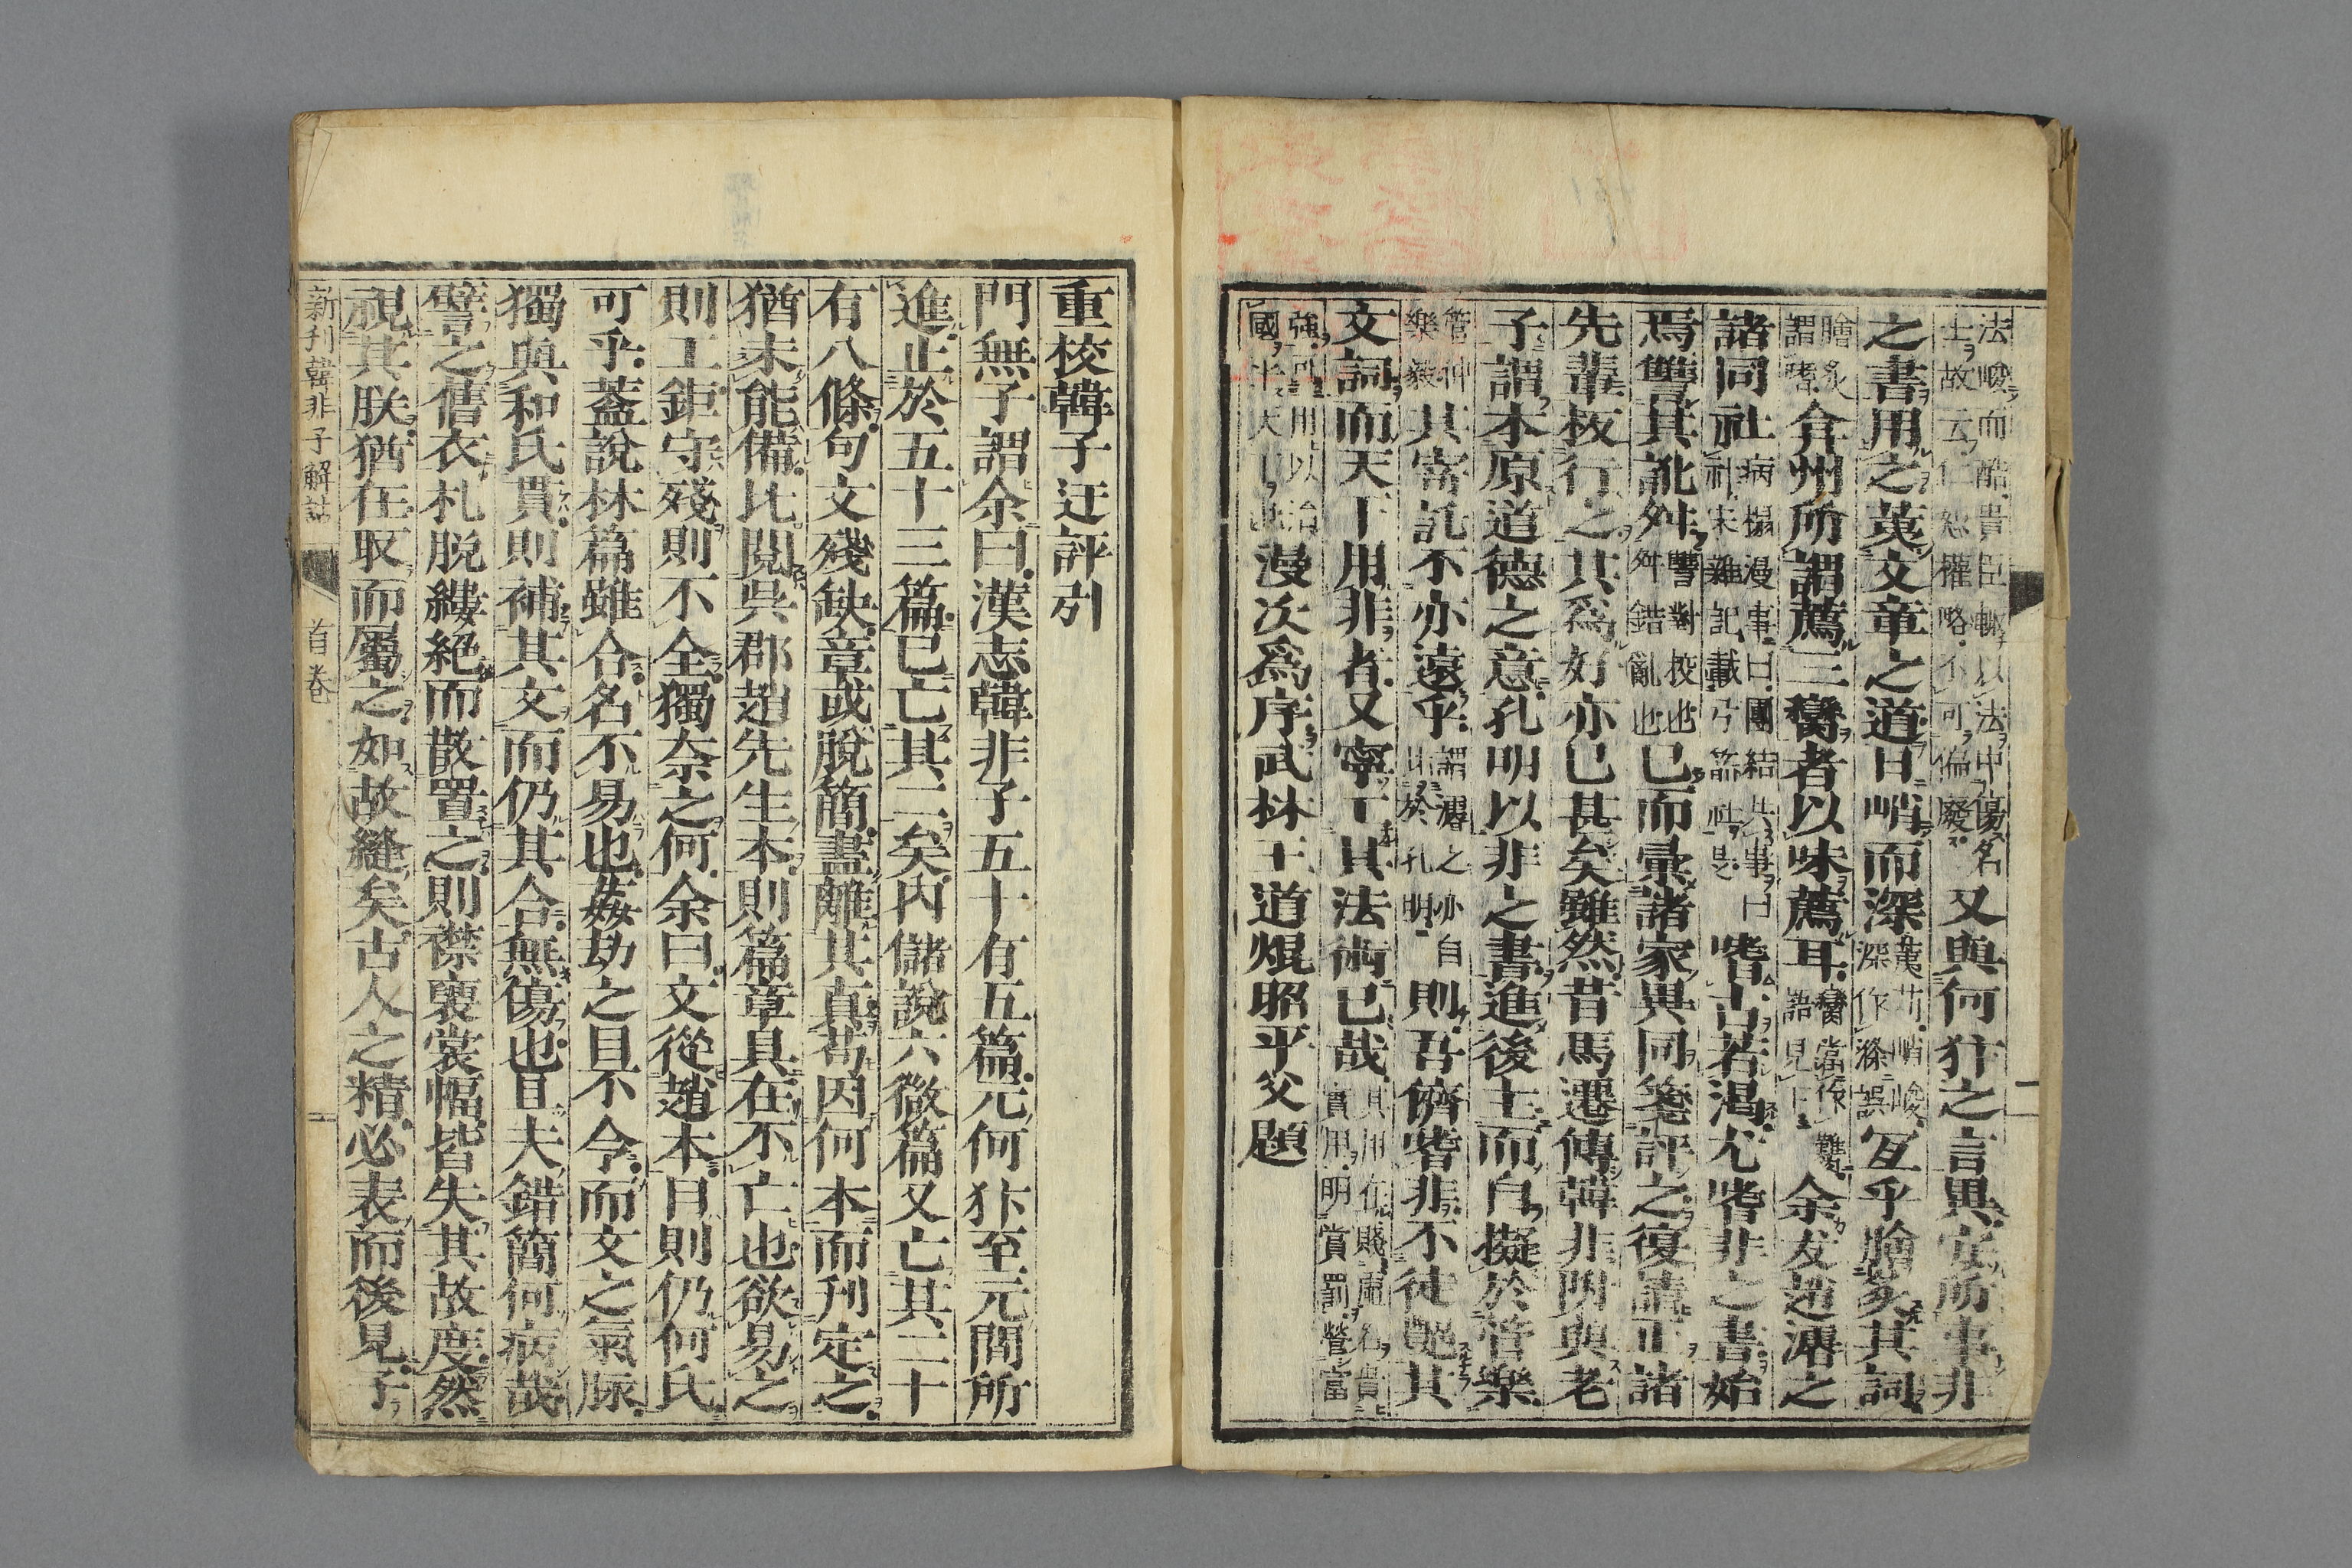 法峻而酷貴臣輒以法中傷名
士故云仁恕權略不可偏廢
又與何犿之言異安所事非
之書用之英文章之道曰峭而深
冝乎膾炙其詞
膾炙
謂嗜
弇州所謂薦三臠者以味薦耳
余友趙濬之
諸同社
嗜古若渴尤嗜非之書始
焉讐其訛舛
讐對校也
舛錯亂也
已而彙諸家異同箋評之復請正諸
先輩板行之其爲好亦已甚矣雖然昔馬遷傳韓非附與老
子謂本原道德之意孔明以非之書進後主而自擬於管樂
管仲
樂毅
其寄託不亦遠乎
則吾儕嗜非不徒艷其
文詞而天下用非者又寧干其法術已哉
漫次爲序武林王道焜昭平父題
重校韓子迂評引
門無子謂余曰漢志韓非子五十有五篇元何犿至元間所
進止於五十三篇已亡其二矣內儲說六微篇又亡其二十
有八條句文殘缺章或脫簡盡離其真茍因何本而刊定之
猶未能備比閱吳郡趙先生本則篇章具在不亡也欲易之
則工鉅守殘則不全獨奈之何余曰文從趙本目則仍何氏
可乎蓋說林篇雖合名不易也姦劫之目不令而文之氣脉
獨與和氏貫則補其文而仍其合無傷也且夫錯簡何病哉
譬之舊衣札脫縷絕而散置之則襟裏裳幅皆失其故度然
視其朕猶在取而屬之如故縫矣古人之精必表而後見子
新刋韓非子解詁
首卷
二